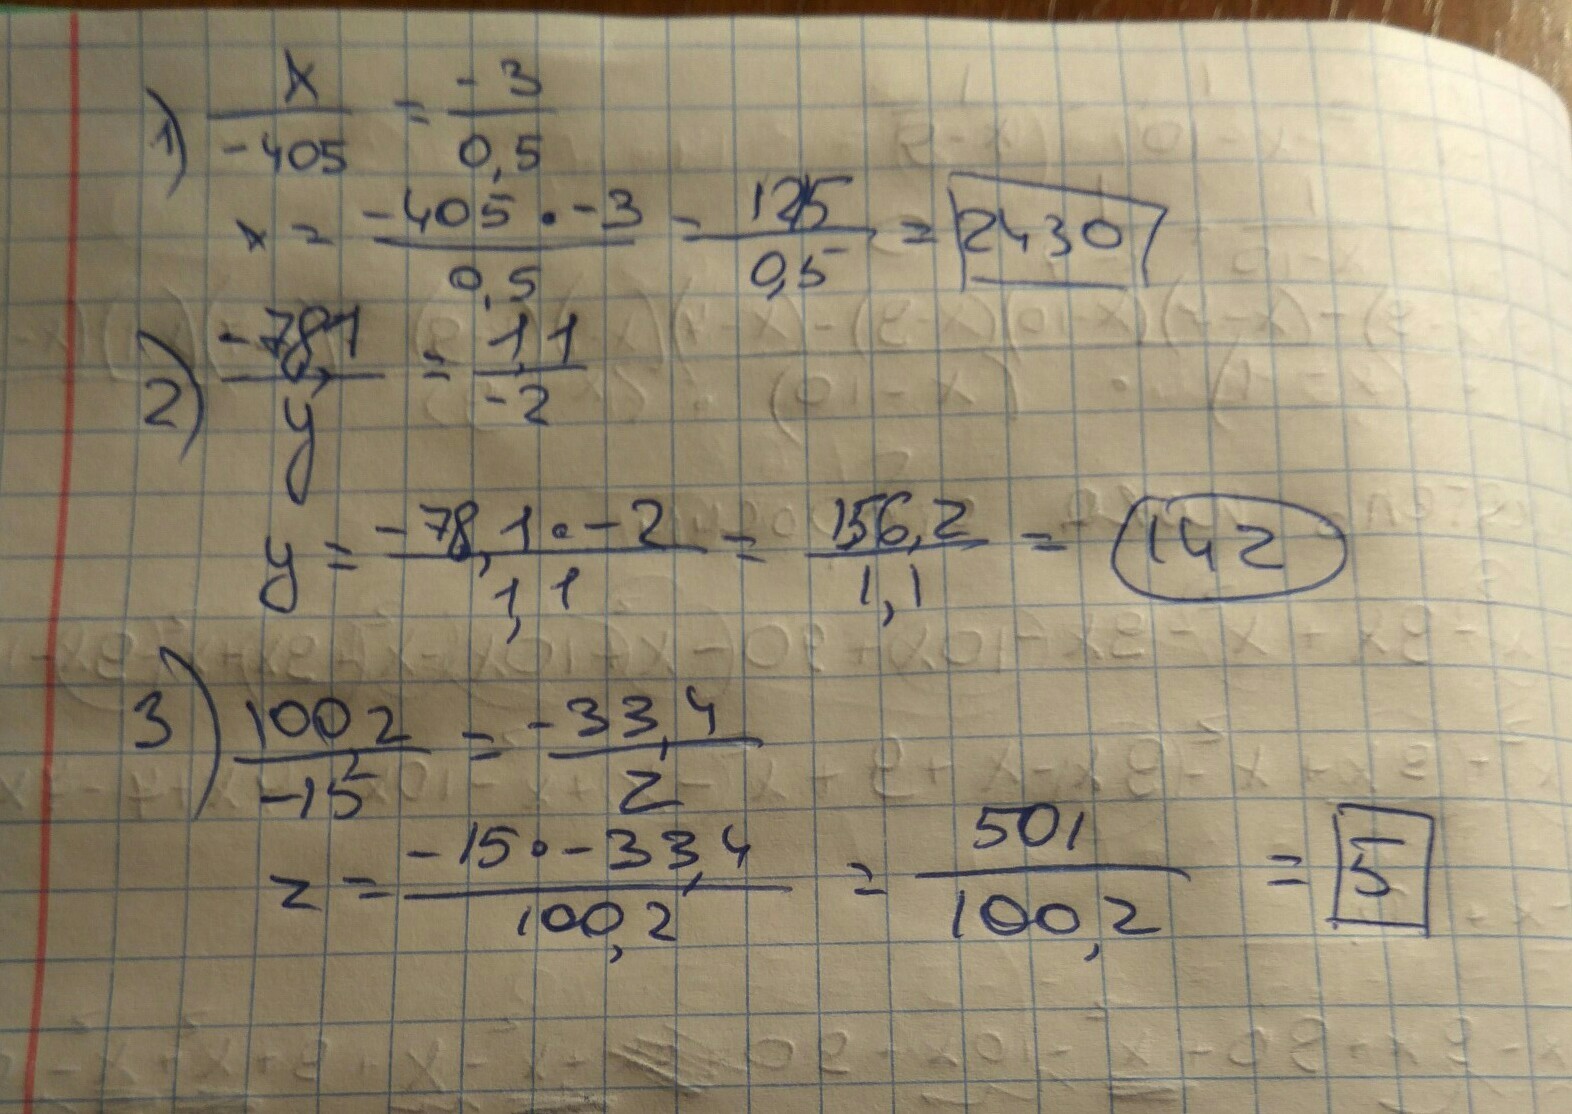 1) x/-405 = -3/0,5
x = -405 · -3/0,5 = 125/0,5 = 2430
2) -78,1/y = 1,1/-2
y = -78,1 · -2/1,1 = 156,2/1,1 = 142
3) 100,2/-15 = -33,4/z
z = -15 · -33,4/100,2 = 501/100,2 = 5